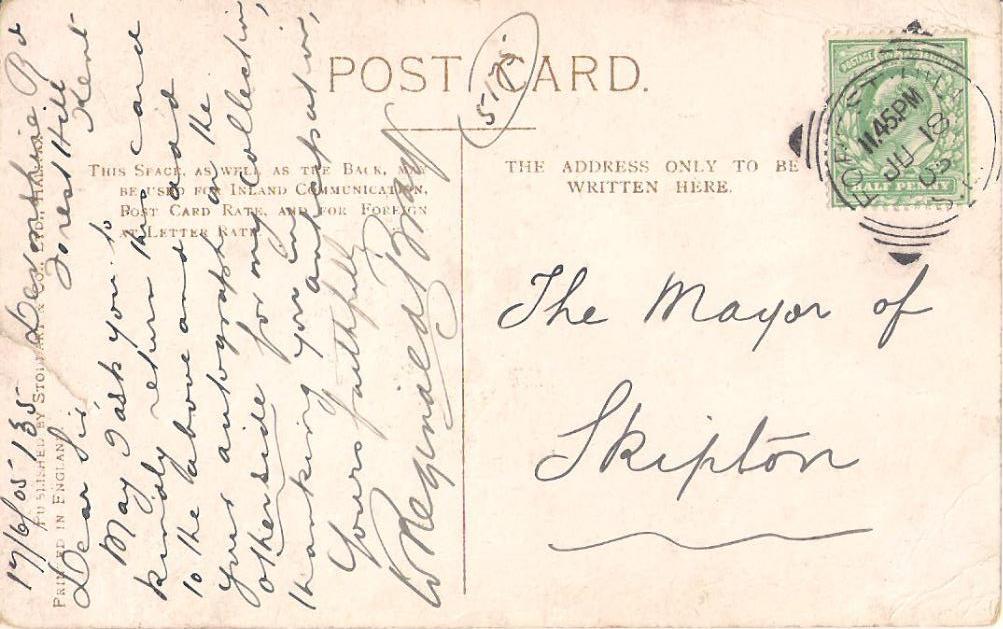 POST CARD.
5175
THIS SPACE, AS WELL AS THE BACK, MAY
BE USED FOR INLAND COMMUNICATION,
POST CARD RATE, AND FOR FOREIGN
AT LETTER RATE
THE ADDRESS ONLY TO BE
WRITTEN HERE.
POSTAGE
HALF PENNY
FOREST HILL
11.45PM
JU 18
05
S.E.
The Mayor of
Skipton
PUBLISHED BY STODDART & CO., LTD., HALIFAX.
PRINTED IN ENGLAND.
17/6/05 135 Devonshire Rd
Forest Hill
Kent
Dear Sir
May I ask you to
kindly return this card
to the above and add
your autograph on the
otherside for my collection,
thanking you in anticipation,
Yours faithfully
W Reginald Bray